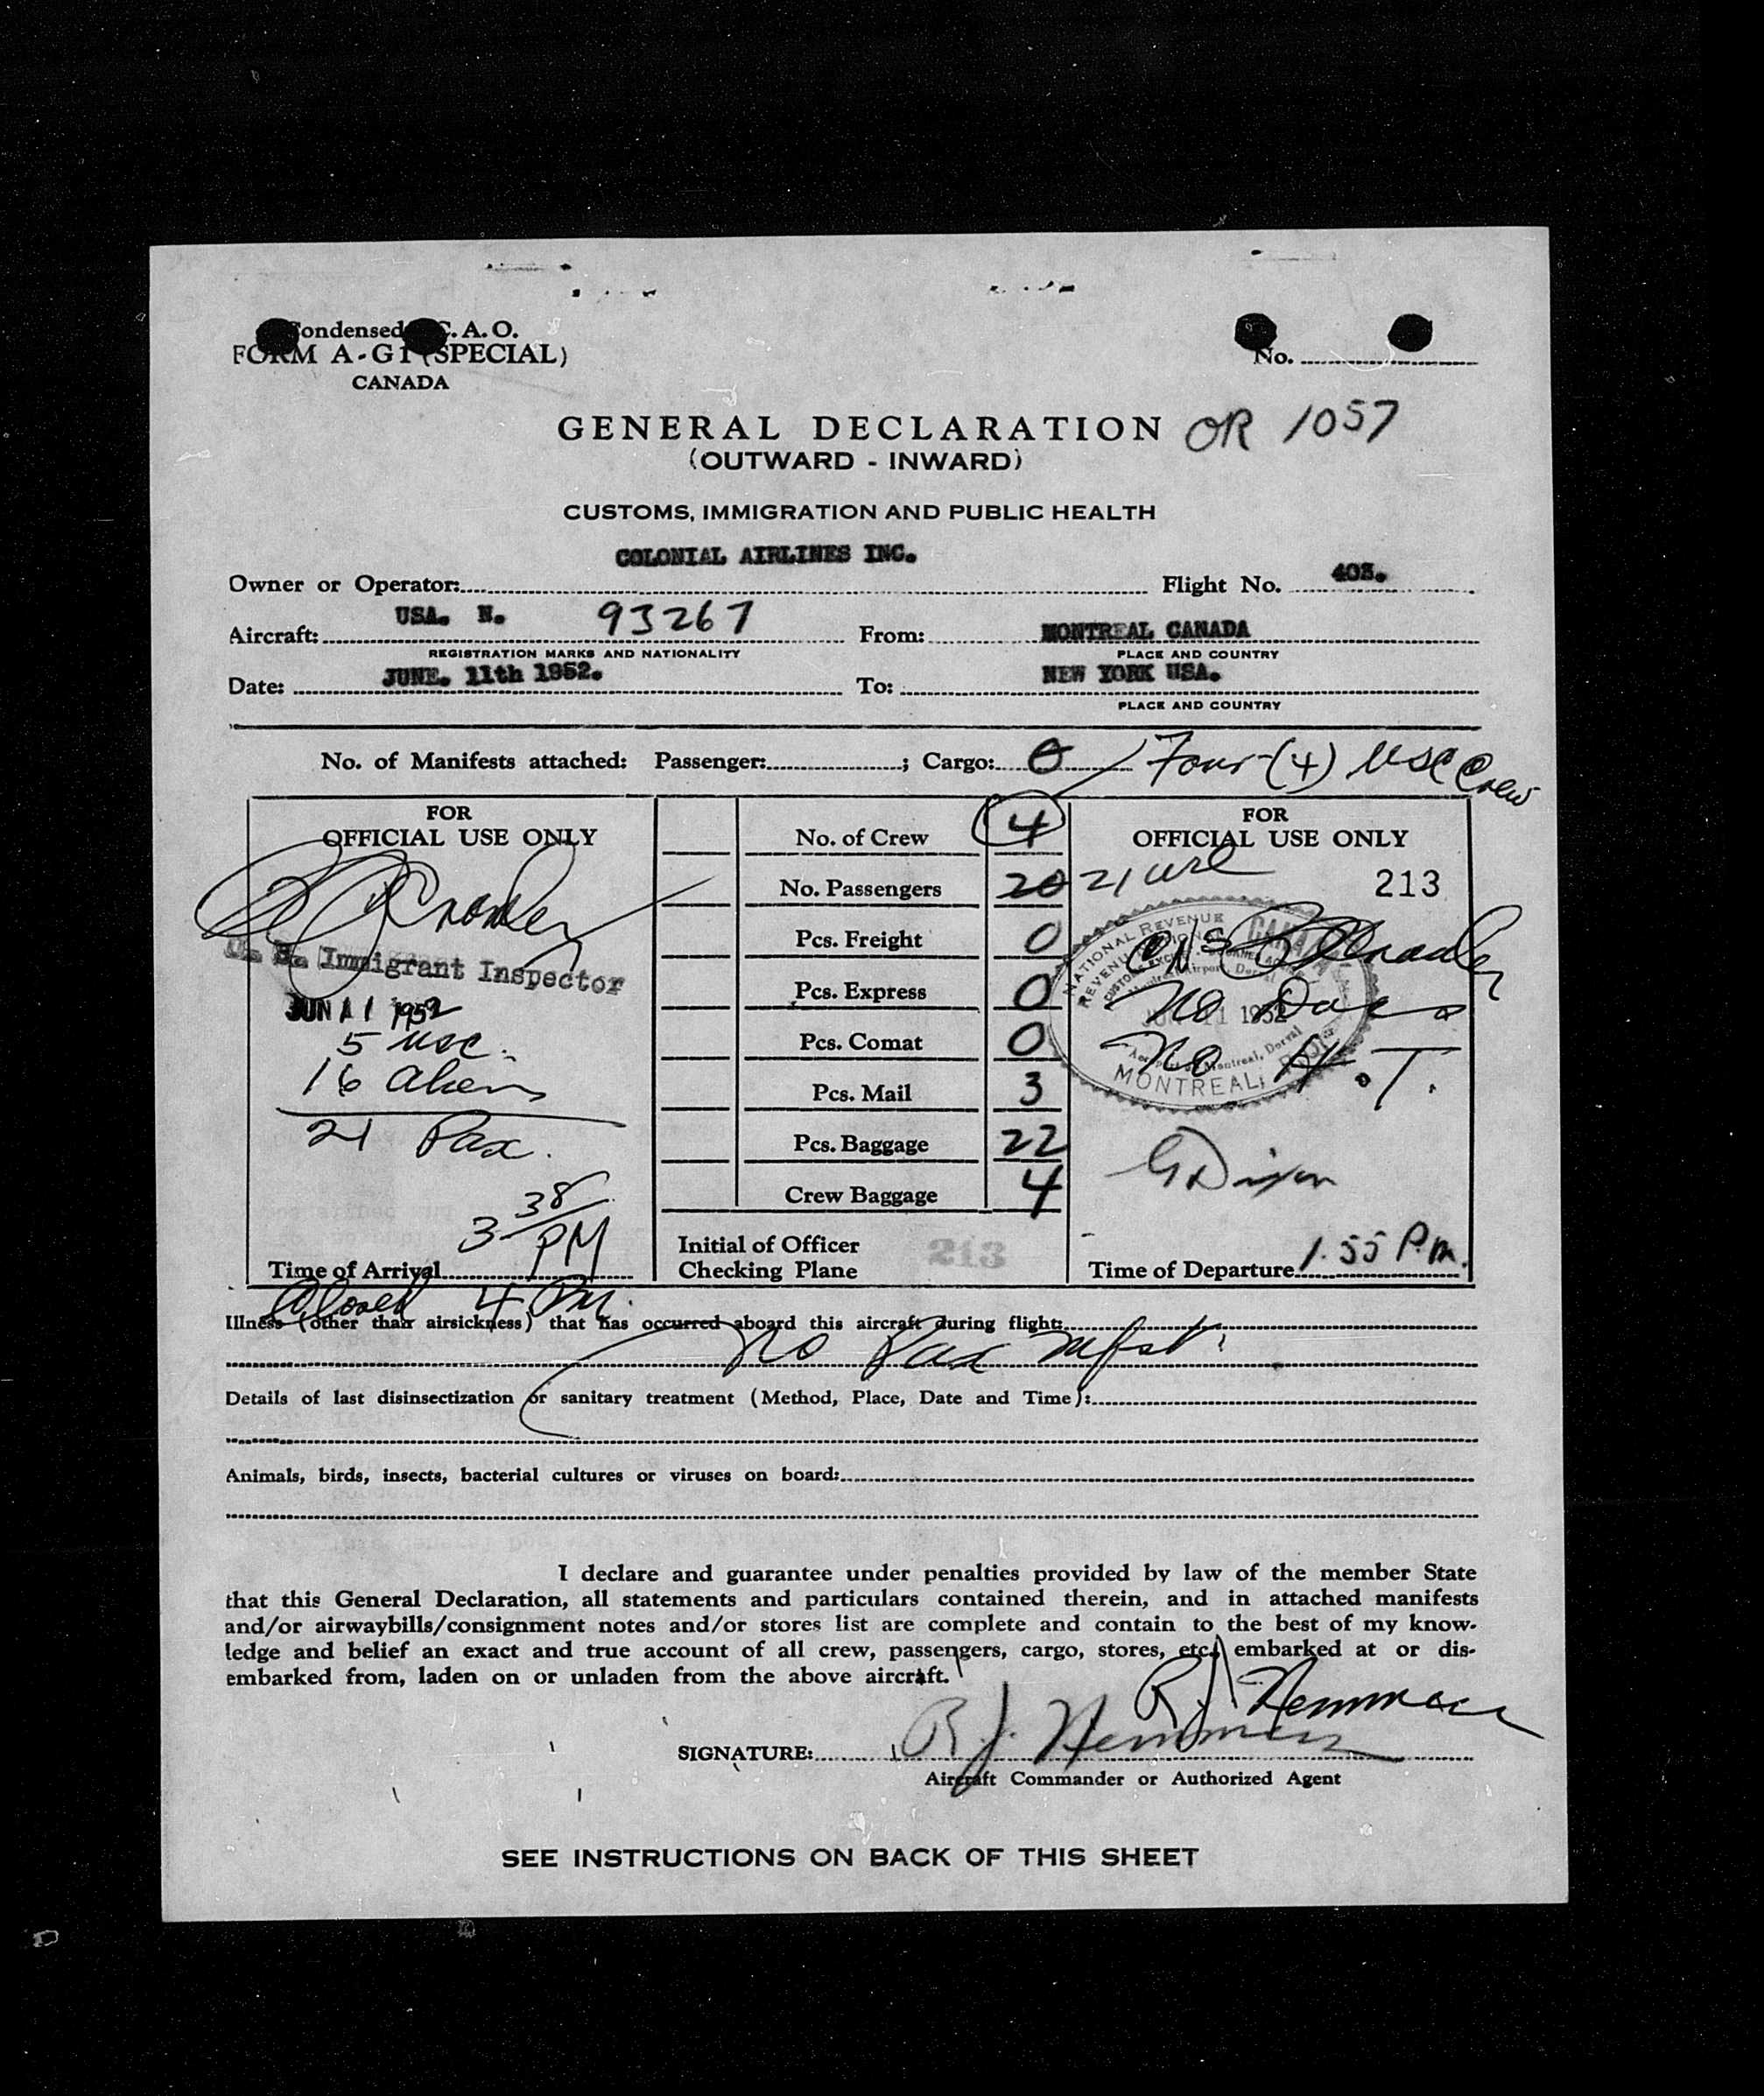 Condensed I.C.A.O.
FORM A-G1 (SPECIAL)
CANADA
No.
GENERAL DECLARATION OR 1057
(OUTWARD - INWARD)
CUSTOMS, IMMIGRATION AND PUBLIC HEALTH
COLONIAL AIRLINES INC.
Owner or Operator: Flight No. 403.
Aircraft: USA. N. 93267 From: MONTREAL CANADA
REGISTRATION MARKS AND NATIONALITY PLACE AND COUNTRY
Date: JUNE. 11th 1952. To: NEW YORK USA.
PLACE AND COUNTRY
No. of Manifests attached: Passenger: ; Cargo: 0 Four (4) USC Crew
FOR
OFFICIAL USE ONLY
U. S. Immigrant Inspector
JUN 11 1952
5 usc.
16 aliens
21 Pax.
3 38 PM
Time of Arrival
No. of Crew 4
No. Passengers 20 21
Pcs. Freight 0
Pcs. Express 0
Pcs. Comat 0
Pcs. Mail 3
Pcs. Baggage 22
Crew Baggage 4
Initial of Officer
Checking Plane 213
FOR
OFFICIAL USE ONLY
213
NATIONAL REVENUE
CANADA
JUN 11 1952
MONTREAL,
No
No H.T.
G Dixon
Time of Departure 1.55 P.m.
Closed 4 PM.
Illness (other than airsickness) that has occurred aboard this aircraft during flight:
No Pax mfst.
Details of last disinsectization or sanitary treatment (Method, Place, Date and Time):
Animals, birds, insects, bacterial cultures or viruses on board:
I declare and guarantee under penalties provided by law of the member State
that this General Declaration, all statements and particulars contained therein, and in attached manifests
and/or airwaybills/consignment notes and/or stores list are complete and contain to the best of my know-
ledge and belief an exact and true account of all crew, passengers, cargo, stores, etc., embarked at or dis-
embarked from, laden on or unladen from the above aircraft.
SIGNATURE: R.J.
Aircraft Commander or Authorized Agent
SEE INSTRUCTIONS ON BACK OF THIS SHEET